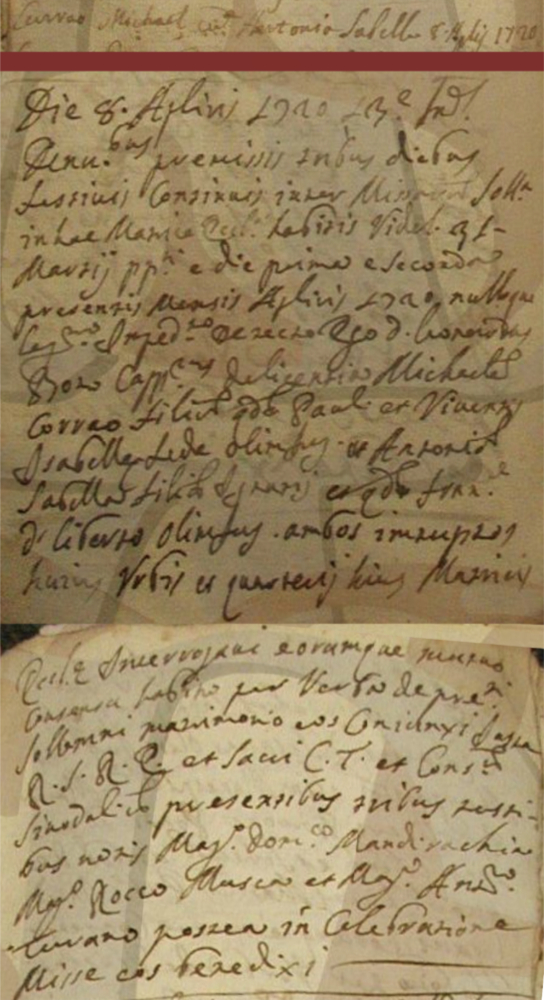 Currao Michael cū Antonia Sabella 8. Aplis 1720
Die 8. Aplivis 1720 13.e Ind.
Denu.bus premissis tribus diebus
festivis Continuis inter Missarum Soll.a
in hac Matrice Eccl.a habitis Videl. 31
Martij pp.ti e die prima e Seconda
presentis Mensis Aplivis 1720, nulloque
leg.mo Imped.to Detecto Ego D.
Capp.nus de licentia Michaele
Corrao filiū qdm Pauli et Viventis
Isabelle de Olimpus et Antoniā
Sabella filiā Ignatij et qdm
d' liberto Olimpus. ambos
huius Urbis et quarterij huius Matricis
Eccl.e Interrogavi eorumque mutuo
Consensu habito per Verba de pre.ti
Sollemni matrimonio eos Coniunxi Juxta
R. S. R. E. et Sacri C. T. et Cons.s
Sinodal. presentibus tribus testi-
bus notis Mag.o Dom.co Mandirachia
Mag.o Rocco Musca et Mag.o Ant.o
postea in Celebratione
Misse eos benedixi